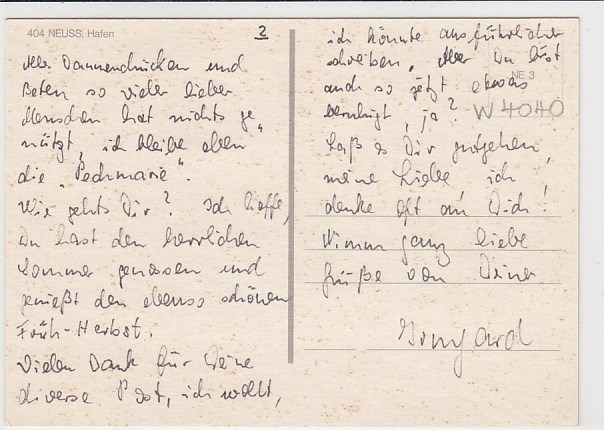 404 NEUSS, Hafen
2
Alles Daumendrücken und
Beten so vieler lieber
Menschen hat nichts ge-
nützt, ich bleibe eben
die „Pechmarie".
Wie geht's Dir? Ich hoffe,
Du hast den herrlichen
Sommer genossen und
genießt den ebenso schönen
Früh-Herbst.
Vielen Dank für Deine
diverse Post, ich wollt,
ich könnte ausführlicher
schreiben, Aber Du bist
NE 3
auch so jetzt etwas
W 4040
beruhigt, ja?
Laß es Dir gutgehen,
meine Liebe ich
denke oft an Dich!
Nimm ganz liebe
Grüße von Deiner
Irmgard